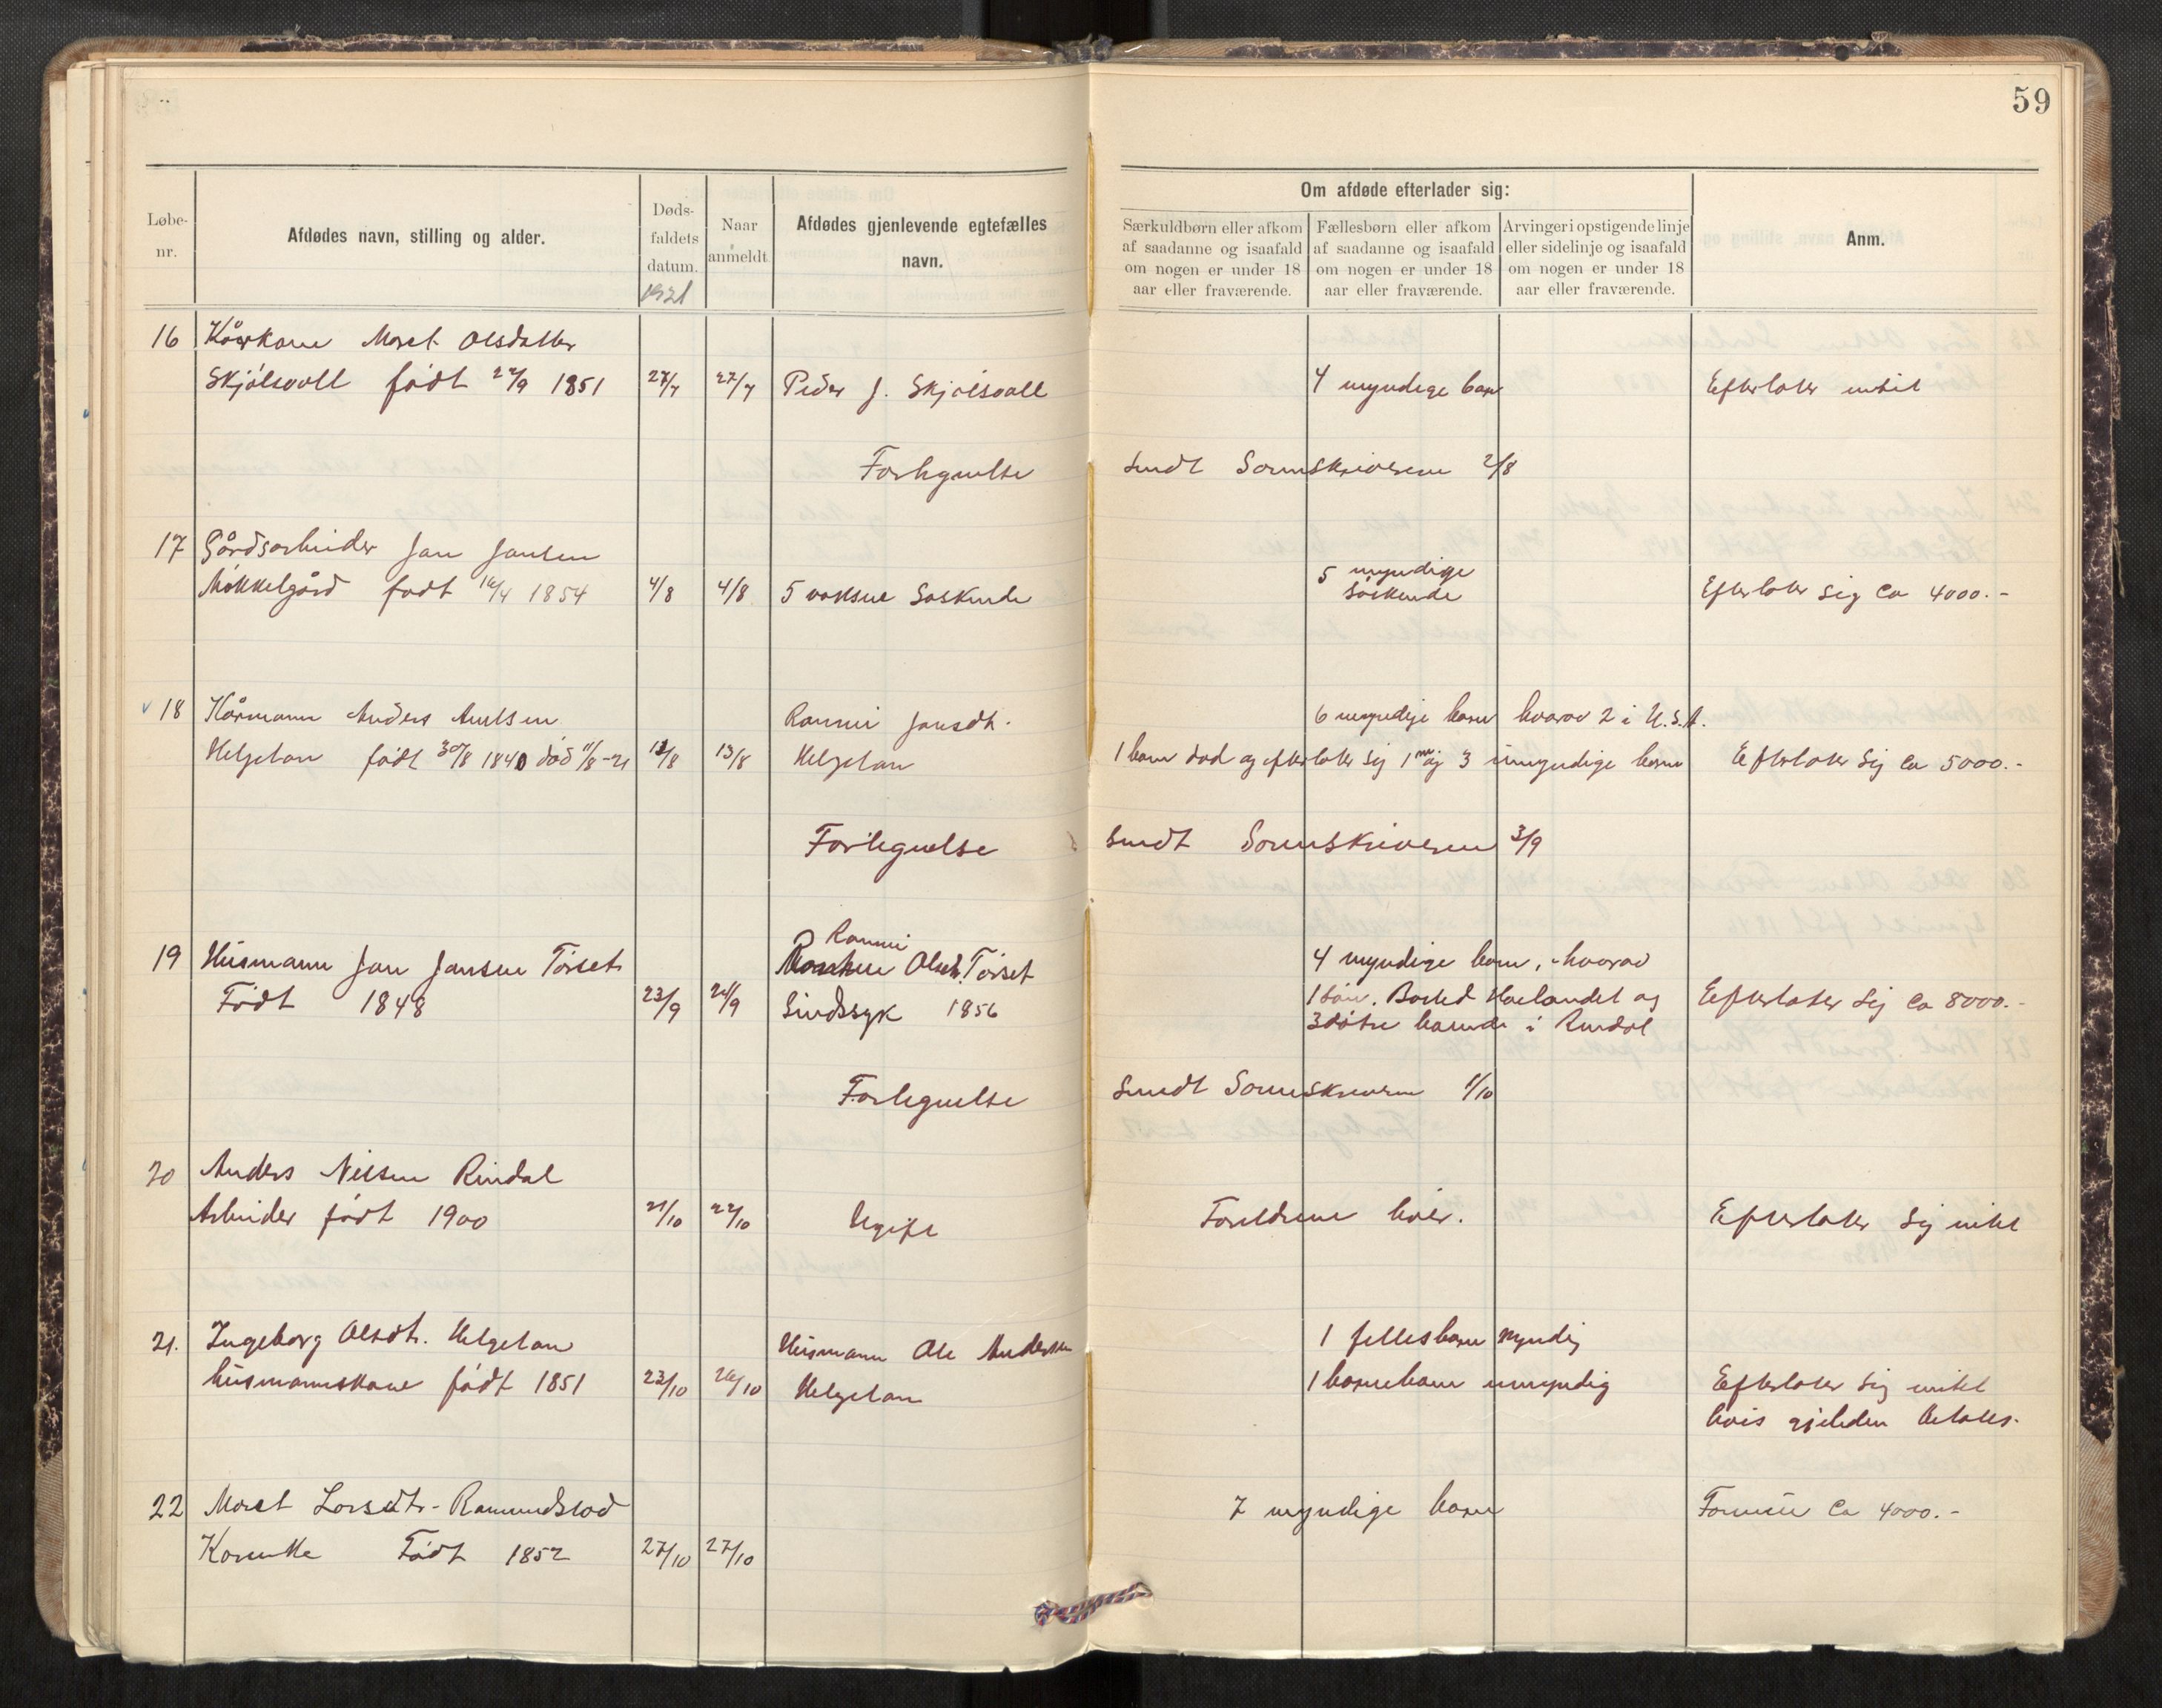 59
Løbe-
nr.
Afdødes navn, stilling og alder.
Døds-
faldets
datum.
1921
Naar
anmeldt
Afdødes gjenlevende egtefælles
navn.
Om afdøde efterlader sig:
Særkuldbørn eller afkom
af saadanne og isaafald
om nogen er under 18
aar eller fraværende.
Fællesbørn eller afkom
af saadanne og isaafald
om nogen er under 18
aar eller fraværende.
Arvinger i opstigende linje
eller sidelinje og isaafald
om nogen er under 18
aar eller fraværende.
Anm.
16 Kårkone Marit Olsdatter
Skjølsvoll født 22/9 1851 27/7 27/7 Peder J. Skjølsvoll 4 myndige barn Efterlater intet
Forlegnelse sendt Sorenskriveren 2/8
17 Gårdsarbeider Jon Jonsen
Møkkelgård født 16/4 1854 4/8 4/8 5 voksne Søskende 5 myndige
søskende Efterlater sig ca 4000.-
18 Kårmann Anders Amlsen Ranni Jonsdt. 6 myndige barn hvorav 2 i U.S.A.
Helgetun født 30/8 1840 død 11/8-21 13/8 13/8 Helgetun 1 barn død og efterlater sig 1 og 3 umyndige barn Efterlater sig ca 5000.-
Forlegnelse sendt Sorenskriveren 3/9
Ranni
19 Husmann Jon Jonsen Tørset Olsdt. Tørset 4 myndige barn, hvorav
Født 1848 23/9 24/9 Sindssyk 1856 1 søn. Bosted Hølandet og Efterlater sig ca 8000.-
3 døtre boende i Rindal
Forlegnelse Sendt Sorenskriveren 1/10
20 Anders Nilsen Rindal
Arbeider født 1900 21/10 22/10 Ugift Foreldrene lever. Efterlater sig intet
21. Ingeborg Olsdt. Helgetun Husmann Ole Andersen 1 fellesbarn myndig
husmannskone født 1851 23/10 26/10 Helgetun 1 barnebarn umyndig Efterlater sig intet
hvis gjelden betales.
22 Marit Larsdtr. Romundstad 7 myndige barn Formue ca 4000.-
Født 1852 27/10 27/10